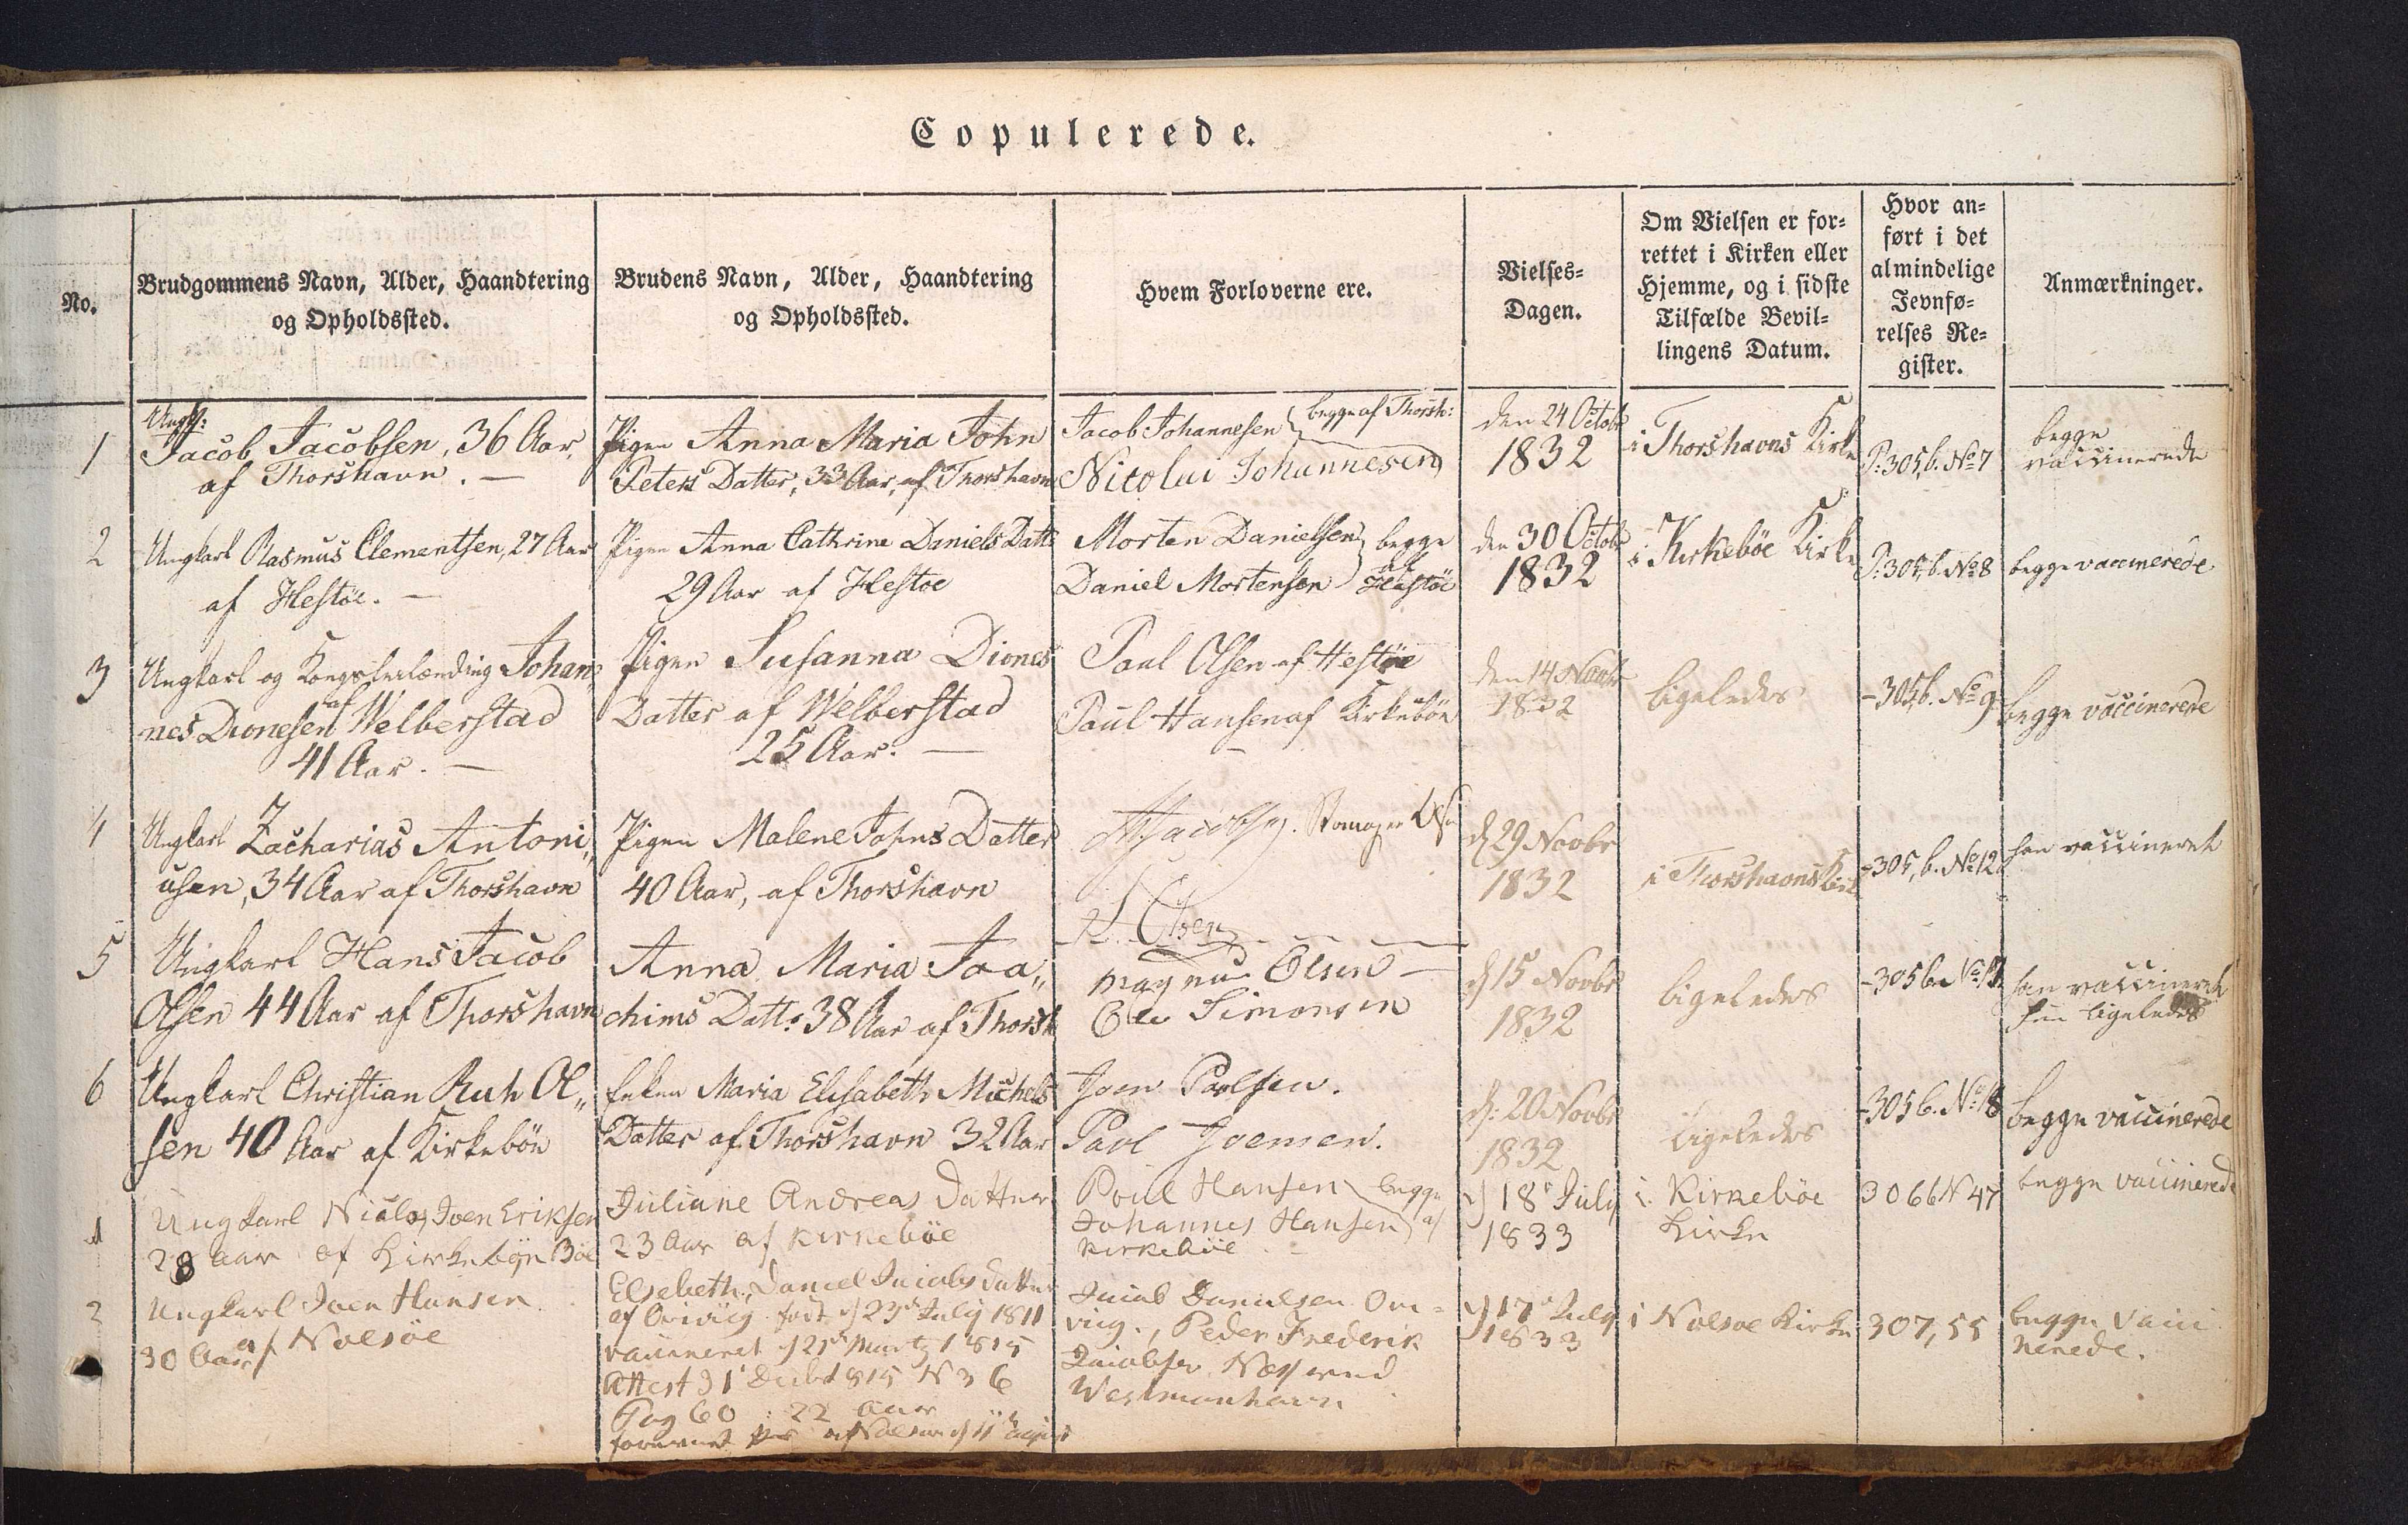 Copulerede.
No.
Brudgommens Navn, Alder, Haandtering
og Opholdssted.
Brudens Navn, Alder, Haandtering
og Opholdssted.
Hvem Forloverne ere.
Vielses-
Dagen.
Om Vielsen er for-
rettet i Kirken eller
Hjemme, og i sidste
Tilfælde Bevil-
lingens Datum.
Hvor an-
ført i det
almindelige
Jevnfø-
relses Re-
gister.
Anmærkninger.
1
Ungk:
Jacob Jacobsen, 36 Aar,
af Thorshavn. —
Pigen Anna Maria John
Peters Datter, 33 Aar, af Thorshavn
Jacob Johannesen begge af Thorsh:
Nicolai Johannesen
den 24 Octobr
1832
i Thorshavns Kirke
P: 305, b. No 7
begge
vaccinerede
2
Ungkarl Rasmus Clementsen, 27 Aar
af Hestöe. —
Pigen Anna Cathrine Daniels Datt:
29 Aar af Hestöe
Morten Danielsen begge
af
Daniel Mortensen Hestöe
den 30 Octobr
1832
i Kirkeböe Kirke
P: 305, b. No 8
begge vaccinerede
3
Ungkarl og Johan„
nes Dionesen af Welberstad
41 Aar. —
Pigen Susanna Diones
Datter af Welberstad
25 Aar. —
Paul Olsen af Hestöe
Paul Hansen af Kirkeböe
—
den 14 Novbr
1832
ligeledes
- 305, b. No 9
begge vaccinerede
4
Ungkarl Zacharias Antoni„
usen, 34 Aar af Thorshavn
Pigen Malene Johns Datter
40 Aar, af Thorshavn
Jacobsen.
Olsen
d 29 Novbr
1832
i Thorshavns Kirk
- 305, b. No 12
han vaccineret
5
Ungkarl Hans Jacob
Olsen 44 Aar af Thorshavn
Anna Maria Joa„
chims Datt: 38 Aar af Thorsh
Magnus Olsen —
Ole Simonsen
d 15 Novbr
1832
ligeledes
- 305 b. No
han vaccineret
hun ligeledes
6
Ungkarl Christian Ruth Ol„
sen 40 Aar af Kirkeböe
Enken Maria Elisabeth Michels
Datter af Thorshavn 32 Aar
Joen Poulsen.
Pavl Joensen.
d: 20 Novbr
1832
ligeledes
- 305 b. No 18
begge vaccinerede
1
Ungkarl Niclas Joen Eriksen
28 Aar af Kirkebøe
Juliane Andreas Datter
23 Aar af Kirkebøe
Poul Hansen begge
Johannes Hansen af
Kirkebøe. —
d 18 July
1833
i Kirkebøe
Kirke
306 b N 47
begge vaccinerede
2
Ungkarl Joen Hansen
30 Aar af Nolsöe
Elsebeth Daniel Jacobs Datter
af Qvivig född d 23 July 1811
vaccineret d 21 Martz 1815
Attest d 1 Decbr 1815 N 36
Pag 60 22 Aar
Jacob Danielsen Qvi-
vig., Peder Frederik
Jacobsen
Westmanhavn
d 17 July
1833
i Nolsoe Kirke
307, 55
begge vacci
nerede.